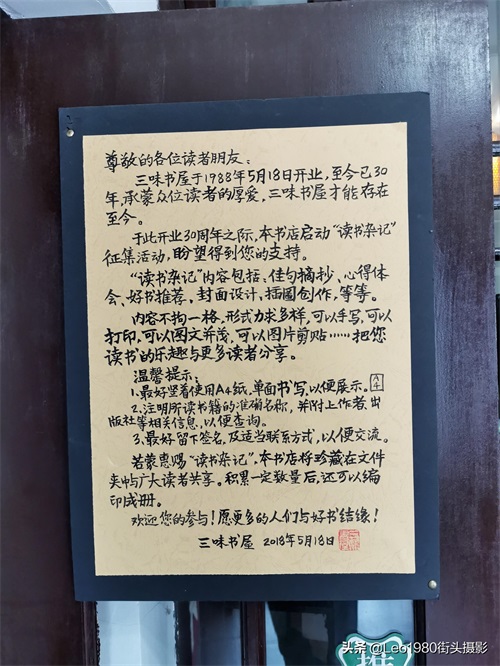 尊敬的各位读者朋友：
三味书屋于1988年5月18日开业，至今已30
年，承蒙众位读者的厚爱，三味书屋才能存在
至今。
于此开业30周年之际，本书店启动“读书杂记”
征集活动，盼望得到您的支持。
“读书杂记”内容包括：佳句摘抄、心得体
会、好书推荐，封面设计，插图创作，等等。
内容不拘一格，形式力求多样，可以手写，可以
打印，可以图文并茂，可以图片剪贴……把您
读书的乐趣与更多读者分享。
温馨提示：
1.最好竖着使用A4纸，单面书写，以便展示。A4
2.注明所读书籍的准确名称，并附上作者、出
版社等相关信息，以便查询。
3.最好留下签名，及适当联系方式，以便交流。
若蒙惠赐“读书杂记”，本书店将珍藏在文件
夹中与广大读者共享。积累一定数量后，还可以编
印成册。
欢迎您的参与！愿更多的人们与好书结缘！
三味书屋 2018年5月18日
推
头条 @Leo1980街头摄影